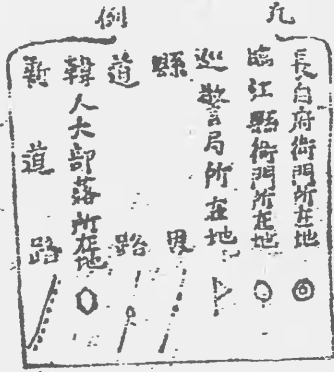 凡例
長白府衙門所在地
臨江縣衙門所在地
巡警局所在地
縣界
道路
韓人大部落所在地
新道路